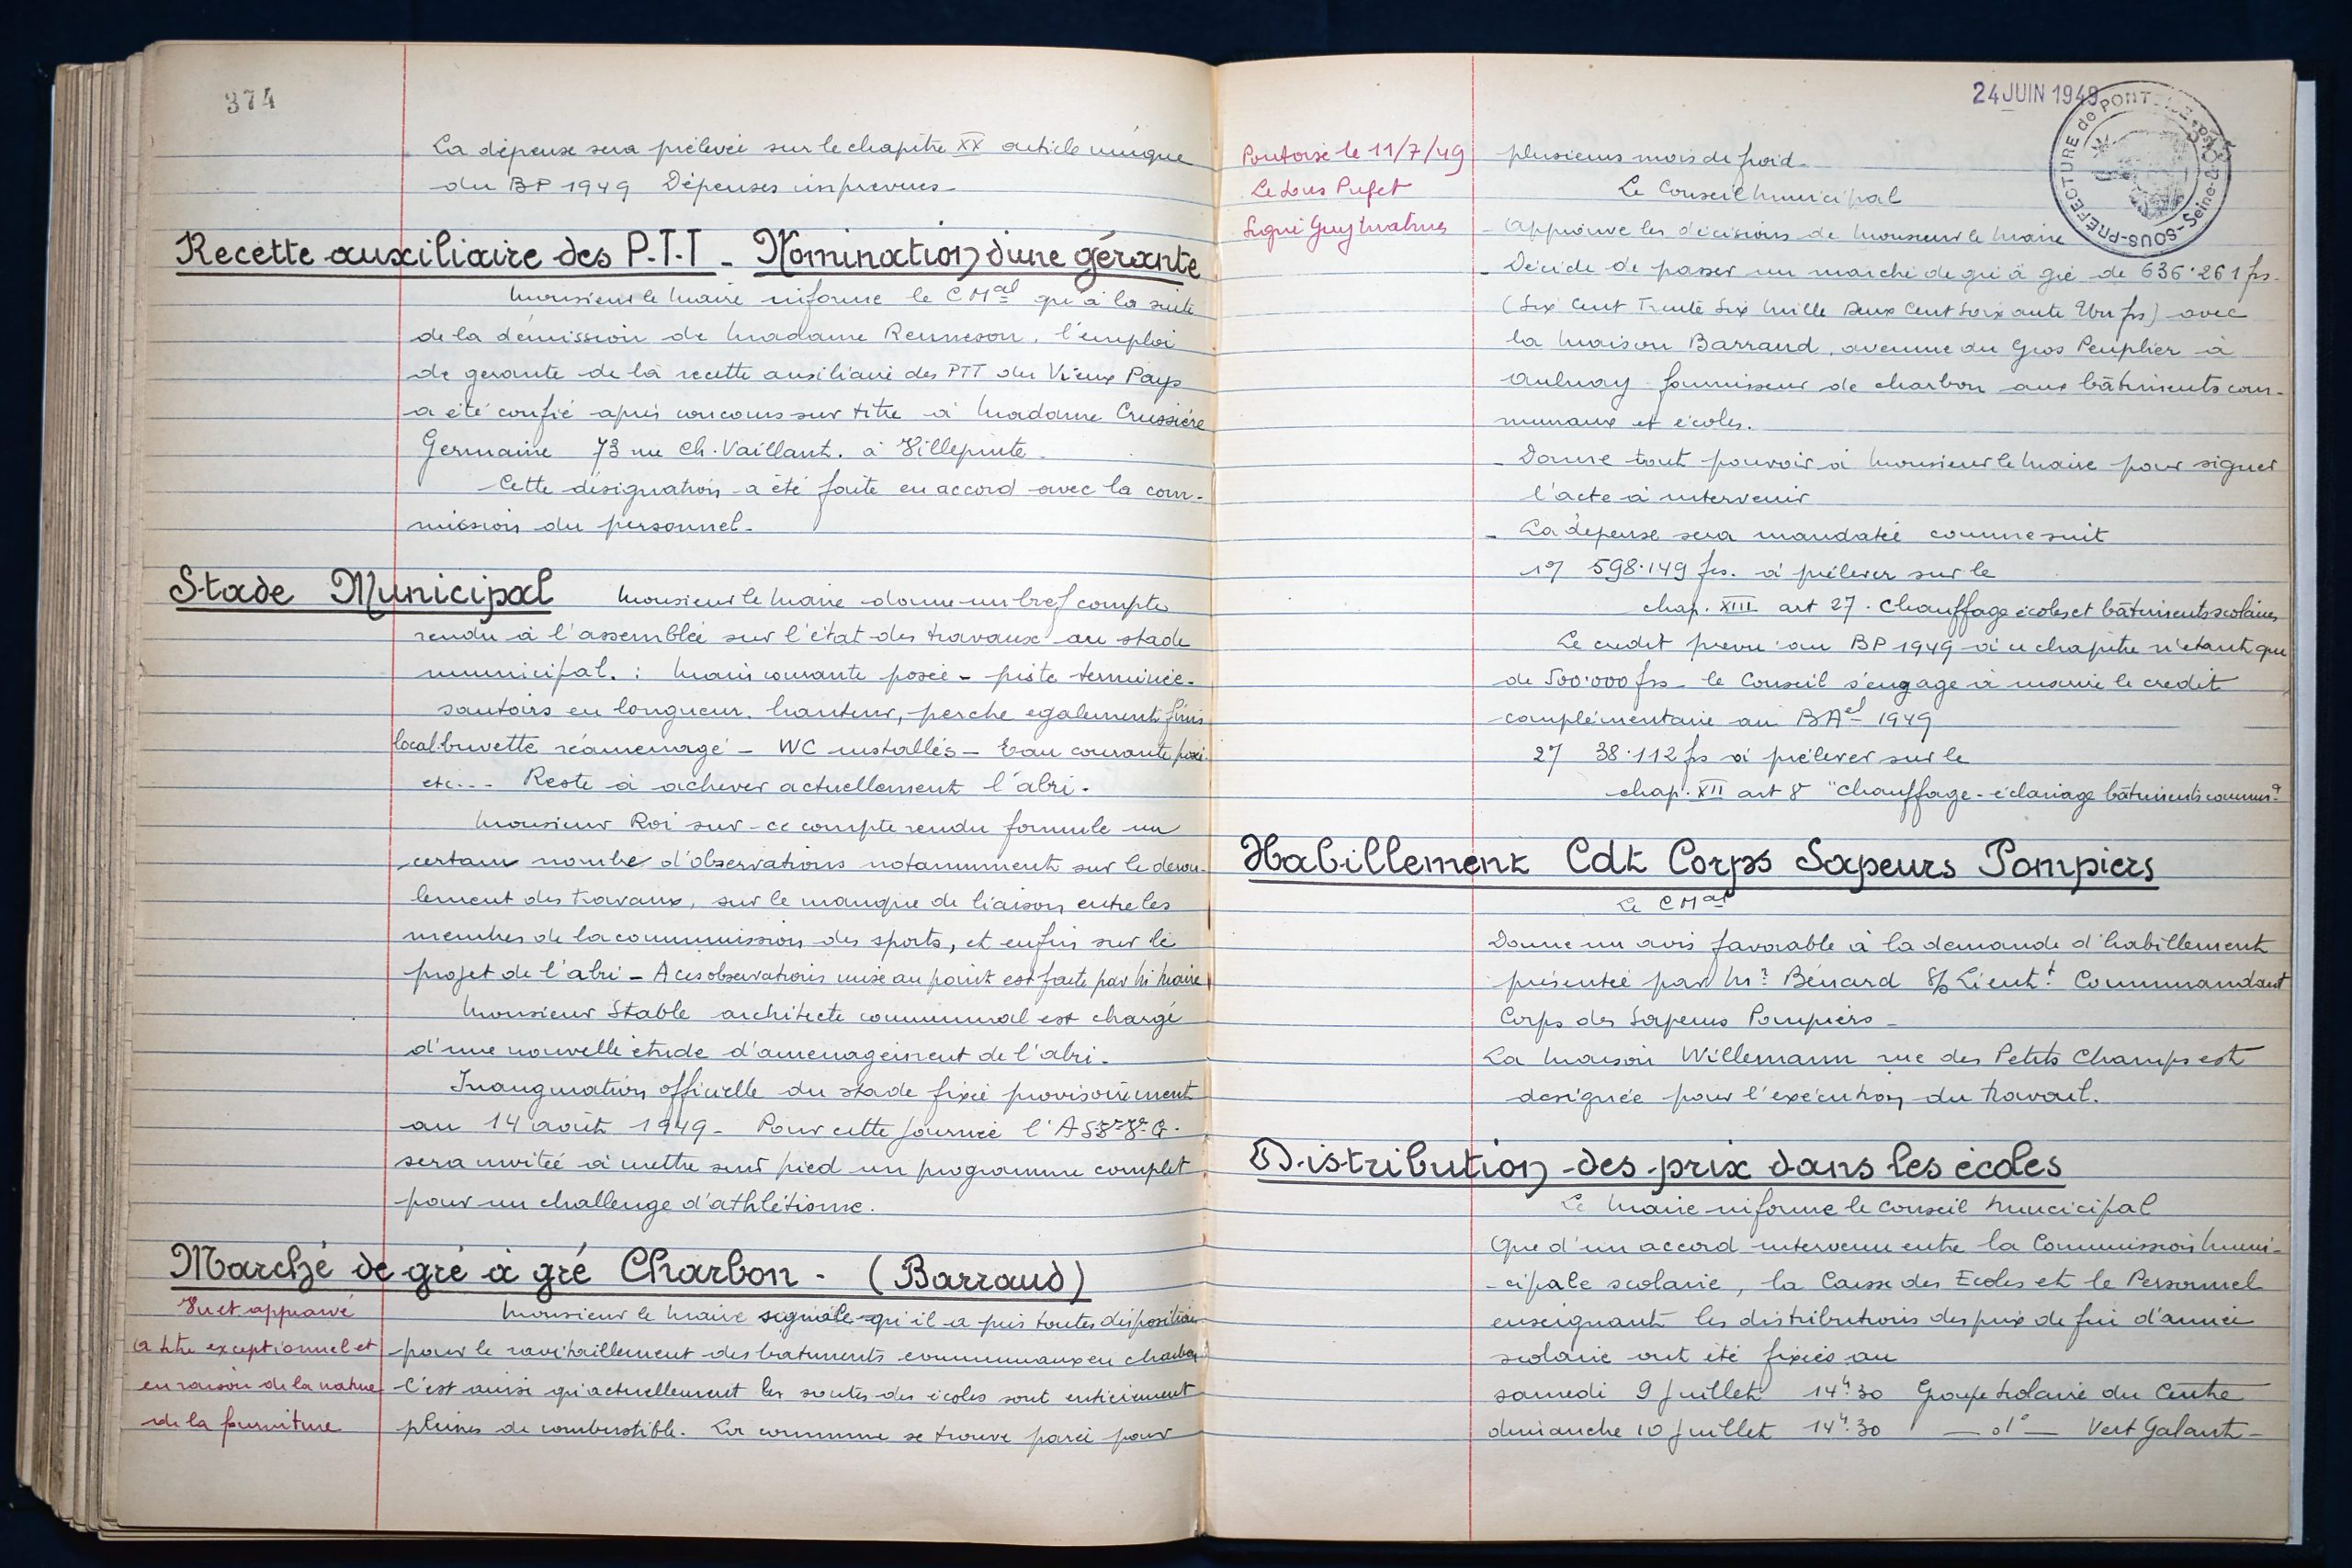 374
La dépense sera prélevée sur le chapitre XX article unique
du BP 1949 Dépenses imprévues -
Recette auxiliaire des P.T.T - Nomination d'une gérante
Monsieur le Maire informe le C Mal qu'à la suite
de la démission de Madame Renneson, l'emploi
de gerante de la recette auxiliaire des PTT du Vieux Pays
a été confié après concours sur titre à Madame Crussière
Germaine 73 rue Ch. Vaillant. à Villepinte.
Cette désignation a été faite en accord avec la com-
mission du personnel -
Stade Municipal Monsieur le Maire donne un bref compte
rendu à l'assemblée sur l'état des travaux au stade
municipal. : Main courante posée - piste terminée -
sautoirs en longueur, hauteur, perche egalement finis
local buvette réamenagé - WC installés - Eau courante posée
etc... Reste à achever actuellement l'abri.
Monsieur Roi sur ce compte rendu formule un
certain nombre d'observations notamment sur le derou-
lement des travaux, sur le manque de liaison entre les
membres de la commission des sports, et enfin sur le
projet de l'abri - A ces observations mise au point est faite par M. Maire
Monsieur Stable architecte communal est chargé
d'une nouvelle étude d'amenagement de l'abri -
Inauguration officielle du stade fixée provisoirement
au 14 août 1949 - Pour cette journée l'A
sera invitée à mettre sur pied un programme complet
pour un challenge d'athlétisme.
Marché de gré à gré Charbon - (Barraud)
Vu et approuvé
à titre exceptionnel et
en raison de la nature
de la fourniture
Monsieur le Maire signale qu'il a pris toutes dispositions
pour le ravitaillement des batiments communaux en charbon
C'est ainsi qu'actuellement les soutes des écoles sont entièrement
pleines de combustible. La commune se trouve parée pour
24 JUIN 1949
SOUS-PRÉFECTURE de PONTOISE Seine-&-Oise
Pontoise le 11/7/49
Le Sous Prefet
Signé Guy
plusieurs mois de froid -
Le Conseil Municipal
- Approuve les décisions de Monsieur le Maire
- Décide de passer un marché de gré à gré de 636.261 frs -
(Six Cent Trente Six Mille Deux Cent Soixante Un frs) avec
la Maison Barraud, avenue du Gros Peuplier à
Aulnay fournisseur de charbon aux bâtiments com-
munaux et écoles.
- Donne tout pouvoir à Monsieur le Maire pour signer
l'acte à intervenir
- La depense sera mandatée comme suit
1°/ 598.149 frs. à prélever sur le
chap. XIII art 27. Chauffage écoles et bâtiments scolaires
Le credit prevu au BP 1949 à ce chapitre n'étant que
de 500.000 frs le Conseil s'engage à inscrire le credit
complémentaire au BAel 1949
2°/ 38.112 frs à prélever sur le
chap. XII art 8 "Chauffage - éclairage bâtiments commun
Habillement Cdt Corps Sapeurs Pompiers
Le C Mal
Donne un avis favorable à la demande d'habillement
présentée par Mr Bénard S/Lieutt Commandant
Corps des Sapeurs Pompiers -
La Maison Willemann rue des Petits Champs est
designée pour l'exécution du travail.
Distribution des prix dans les écoles
Le Maire informe le Conseil Municipal
Que d'un accord intervenu entre la Commission Muni-
-cipale scolaire, la Caisse des Ecoles et le Personnel
enseignant les distributions des prix de fin d'année
scolaire ont été fixées au
samedi 9 Juillet 14h30 Groupe Scolaire du Centre
dimanche 10 Juillet 14h.30 — d° — Vert Galant -